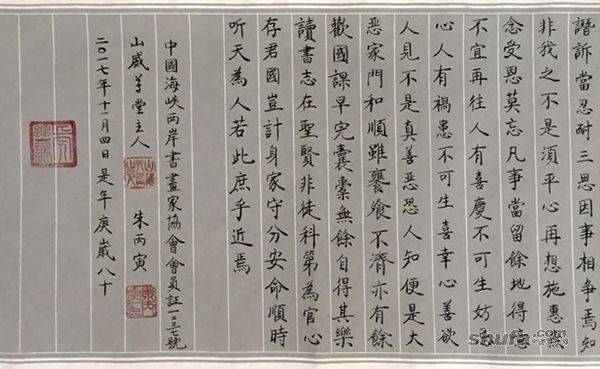 譖訴當忍耐三思因事相爭焉知
非我之不是須平心再想施惠無
念受恩莫忘凡事當留餘地得意
不宜再往人有喜慶不可生妒忌
心人有禍患不可生喜幸心善欲
人見不是真善惡恐人知便是大
惡家門和順雖饔飧不濟亦有餘
歡國課早完囊橐無餘自得其樂
讀書志在聖賢非徒科第為官心
存君國豈計身家守分安命順時
听天為人若此庶乎近焉
中國海峽兩岸書畫家協會會員証一二三七號
山威草堂主人 朱丙寅
二〇一七年十一月四日是年庚歲八十
shufa.com